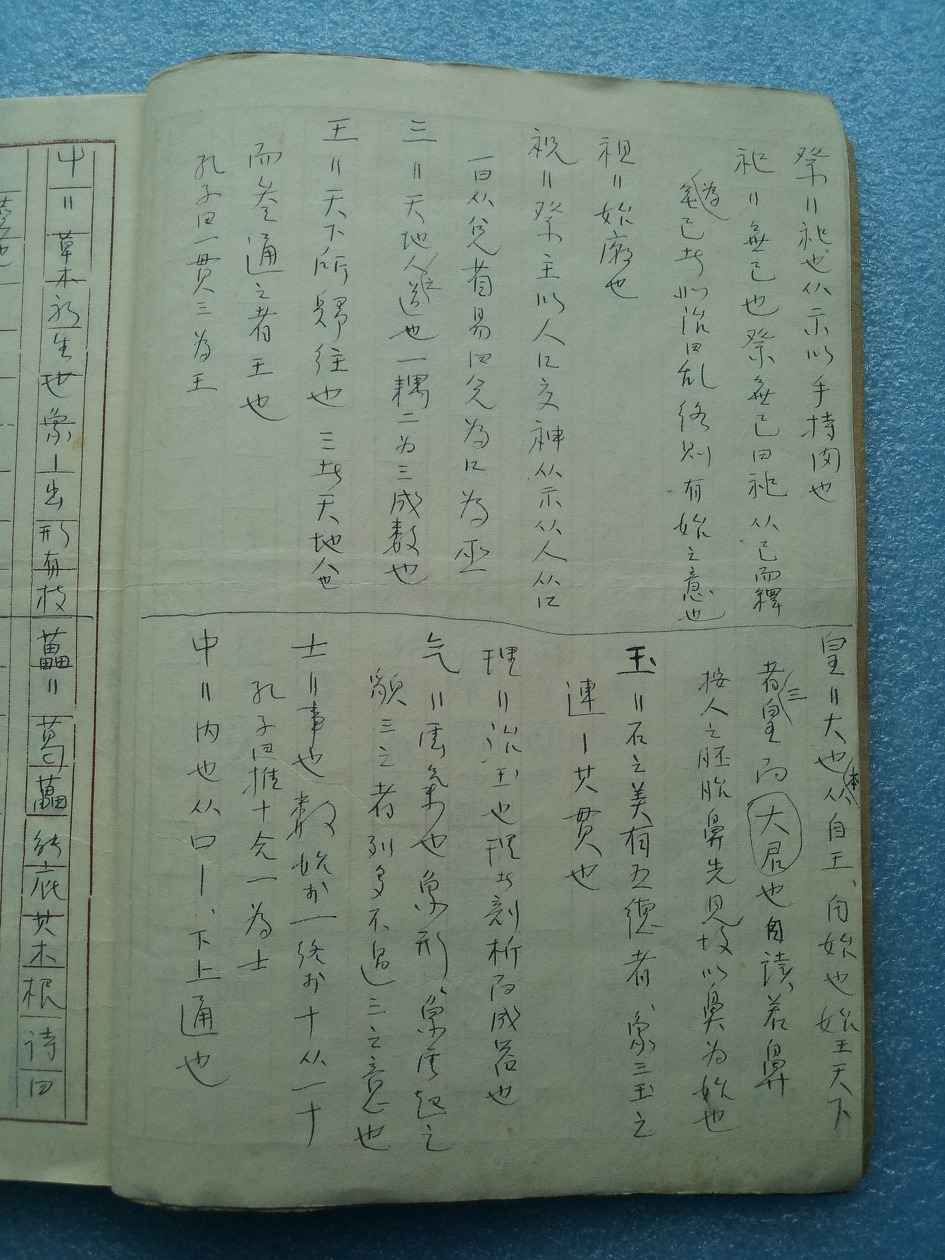 祭＝祀也从示以手持肉也
祀＝無已也祭無已曰祀 从已而釋
為已者 治曰乱 终则有始之意也
祖＝始廟也
祝＝祭主以人口交神从示从人从口
一曰从兌省易曰兌為口為巫
三＝天地人道也一耦二为三成數也
王＝天下所歸往也 三者天地人也
而叁通之者王也
孔子曰一貫三為王
皇＝大也本从自王、自始也始王天下
者三皇而大君也自讀若鼻
按人之胚胎鼻先見故以鼻为始也
玉＝石之美有五德者、象三玉之
連丨其貫也
理＝治玉也理者剖析而成器也
气＝雲气也象形、象雲起之
貌三之者列多不過三之意也
士＝事也 數始於一终於十从一十
孔子曰推十合一為士
中＝内也从口丨、下上通也
屮＝草木初生也象丨出形有枝
藟＝葛藟 能庇其木根 诗曰